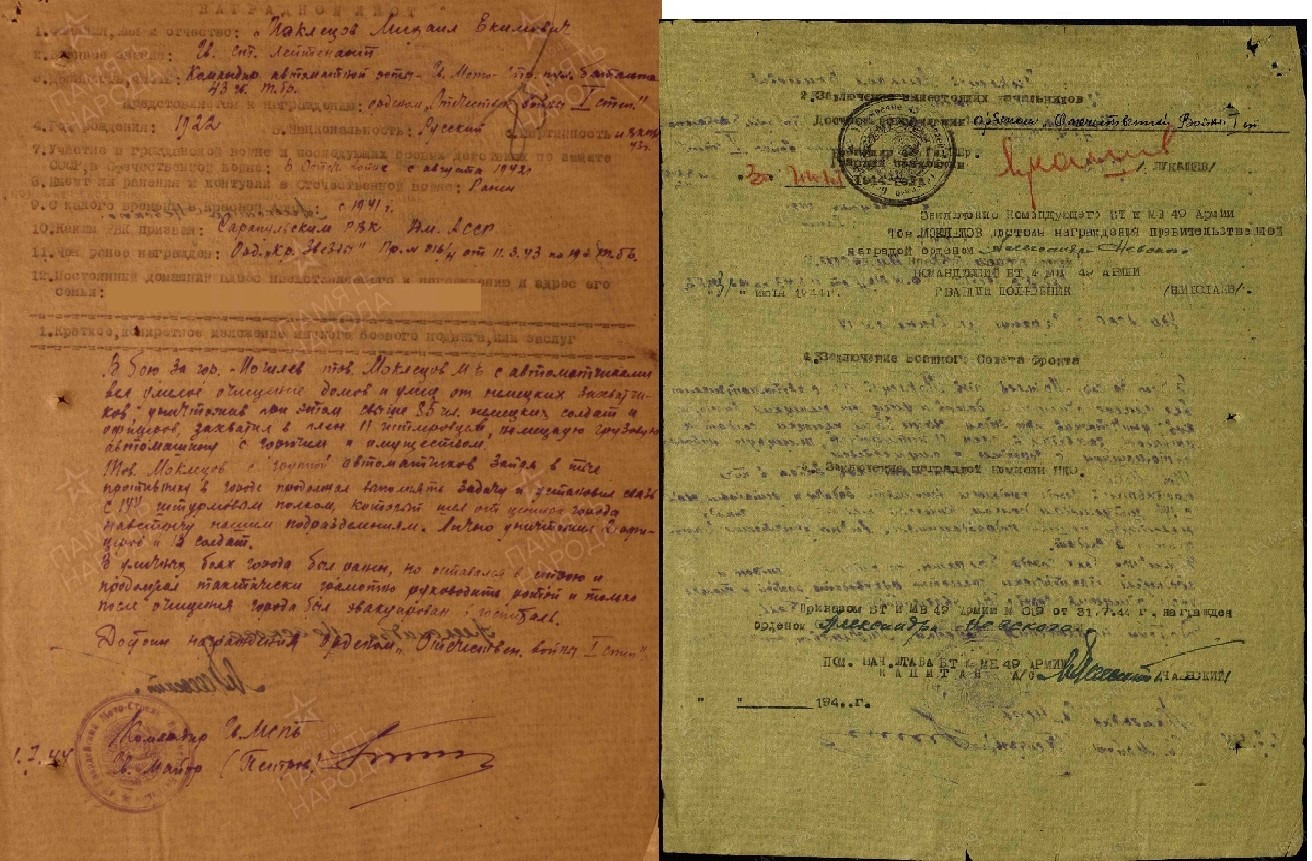 НАГРАДНОЙ ЛИСТ
1. Фамилия, имя и отчество: Моклецов Михаил Екимович
2. Военное звание: Гв. ст. Лейтенант
3. Должность, часть: Командир автоматной роты Гв. Мото-стр. пул. батальона
43 гв. т.бр.
Представляется к награждению: орденом "Отечествен. войны I степ."
4. Год рождения: 1922 5. Национальность: Русский 6. Партийность
43г.
7. Участие в гражданской войне и последующих боевых действиях по защите
СССР, в Отечественной войне: с августа 1942г
8. Имеет ли ранения и контузии в Отечественной войне: Ранен
9. С какого времени в Красной Армии: с 1941 г.
10. Каким РВК призван: Сарапульским РВК Удм. АССР
11. Чем ранее награжден: Орд. "Кр. Звезды" Пр. № 016/н от 11.3.43 по т.бр.
12. Постоянный домашний адрес представляемого к награждению и адрес его
семьи:
1. Краткое, конкретное изложение личного боевого подвига, или заслуг
В бою за гор. Могилев тов. Моклецов М.Е. с автоматчиками
вел умелое очищение домов и улиц от немецких захватчи-
ков уничтожив при этом свыше 35 чел. немецких солдат и
офицеров, захватил в плен 11 гитлеровцев, немецкую грузовую
автомашину с горючим и имуществом.
Тов. Моклецов с группой автоматчиков зайдя в тыл
противнику в городе продолжал выполнять задачу и установил связь
с штурмовым полком, который шел от центра города
навстречу нашим подразделениям. Лично уничтожил 2 офи-
церов и 12 солдат.
В уличных боях города был ранен, но оставался в строю и
продолжал тактически грамотно руководить ротой и только
после очищения города был эвакуирован в госпиталь.
Достоин награждения орденом "Отечествен. войны I степ."
Командир Гв. МСПБ
Гв. Майор (Петров)
1.7.44
2. Заключение вышестоящих начальников
Достоин награждения орденом Отечественной Войны I ст
/ЛУКАШЕВ/
Заключение Командующего БТ и МВ 49 Армии
Тов. МОКЛЕЦОВ достоин награждения правительственной
наградой орденом Александра Невского
КОМАНДУЮЩИЙ БТ и МВ 49 АРМИИ
ГВАРДИИ ПОЛКОВНИК /НИКОЛАЕВ/
" " июля 1944г.
4. Заключение Военного Совета фронта
5. Заключение наградной комиссии НКО.
Приказом БТ и МВ 49 Армии № 019 от 31.7.44 г. награжден
орденом Александра Невского
ПОМ. НАЧ. ШТАБА БТ и МВ 49 АРМИИ
КАПИТАН А/С
" " 194 . г.
ПАМЯТЬ НАРОДА